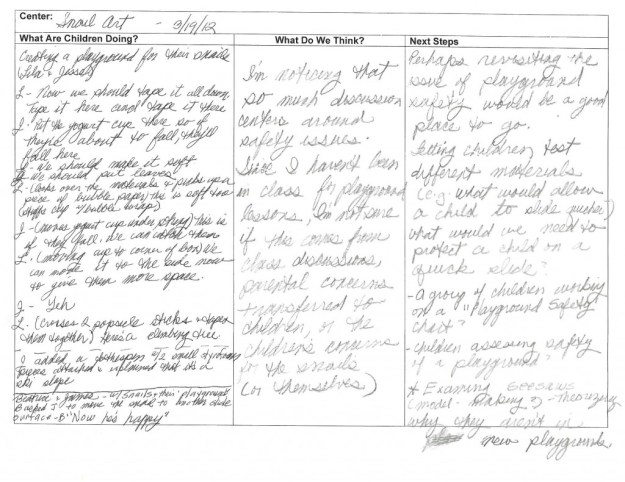 Center: Snail Art - 3/19/12
What Are Children Doing?
Creating a playground for their snails
(Lila & Jesse)
L- Now we should tape it all down.
Tape it here and tape it there
J- Put the yogurt cup there so if
they're about to fall, they'll
fall here
L- We should make it soft
We should put leaves
L- (looks over the materials & picks up a
piece of bubble paper) this is soft too
(stuffs cup w/ bubble wrap)
J- (moves yogurt cup under) this is
if they fall. We can catch them
L- (moving up to corner of box) We
can move it to the side now
to give them more space.
J- Yeh
L- (crosses 2 popsicle sticks & tapes
them together) Here's a climbing tree
J added a clothespin w/ small styrofoam
pieces attached & explained that it's a
ski slope
Beatrice & James - w/ snails & their playground,
B asked J to move the snail to another slide
surface - B "Now he's happy"
What Do We Think?
I'm noticing that
so much discussion
centers around
safety issues.
Since I haven't been
in class for playground
lessons, I'm not sure
if this comes from
class discussions,
parental concerns
transferred to
children, or the
children's concerns
for the snails
(or themselves)
Next Steps
Perhaps revisiting the
issue of playground
safety would be a good
place to go.
Letting children test
different materials
(e.g. what would allow
a child to slide quicker)
what would we need to
protect a child on a
quick slide?
- A group of children working
on a "Playground Safety
Chart"
- Children assessing safety
of a playground?
* Examing seesaws
(model-making &) - theorizing
why they aren't in
new playgrounds